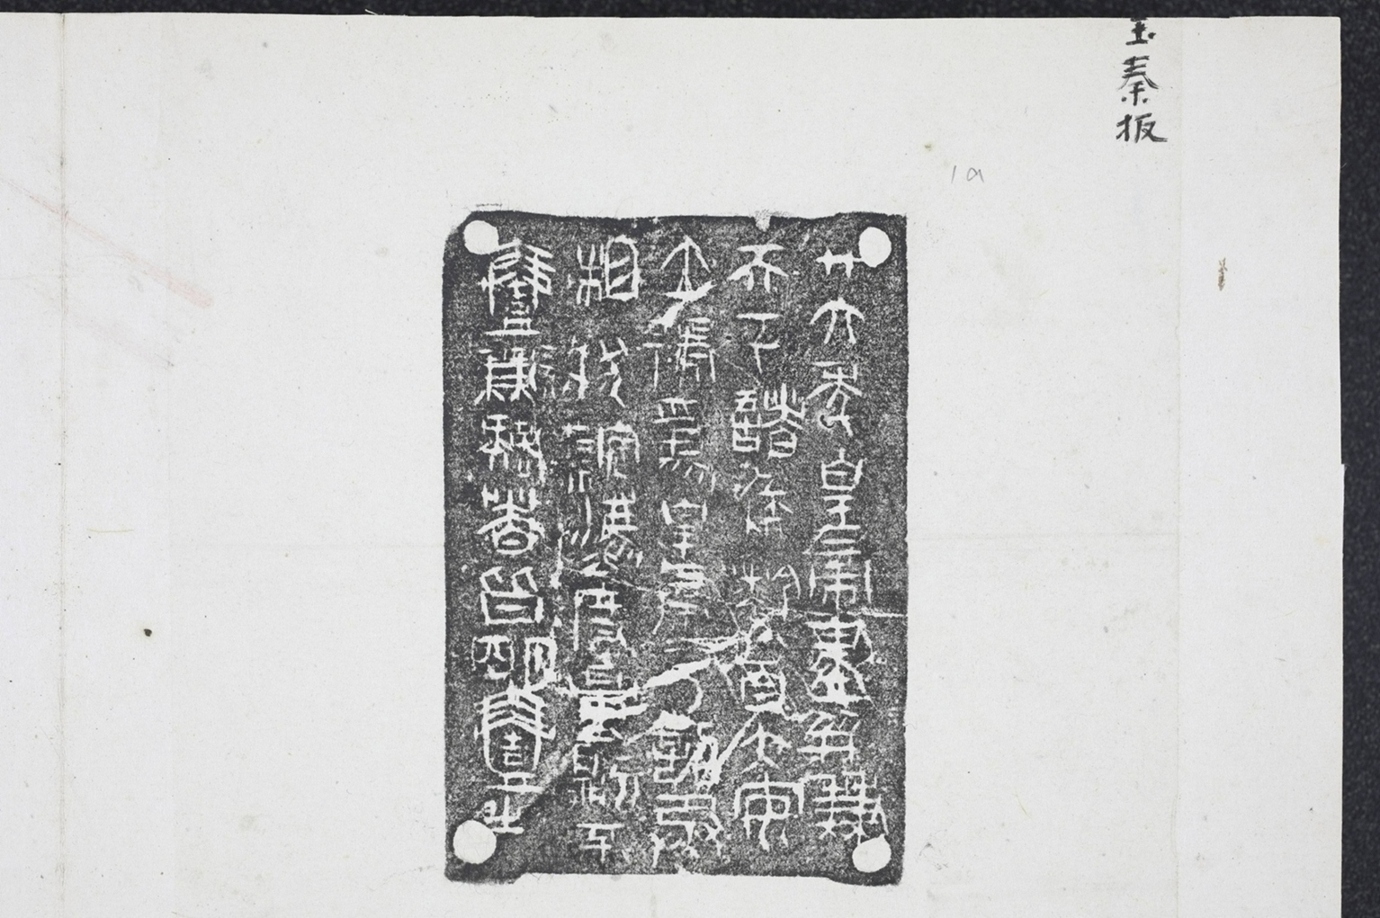 秦板
1a
廿六年皇帝盡并兼
天下諸侯黔首大安
立號為皇帝乃詔丞
相狀綰灋度量則不
壹歉疑者皆明壹之